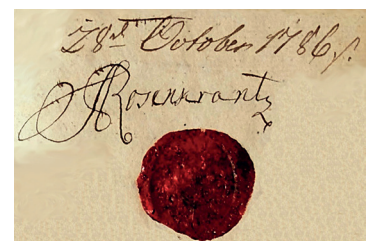 28d. October 1786.
Rosenkrantz